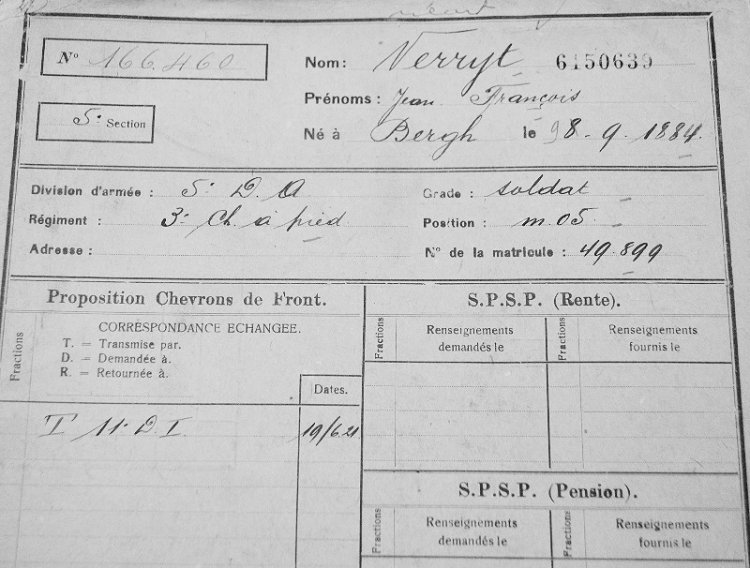 N° 166.460
Nom: Verryt 6150639
Prénoms: Jean François
5e Section
Né à Bergh le 98-9-1884.
Division d'armée : 5e D. A
Grade : soldat
Régiment : 3e Ch. à pied.
Position : m.05.
Adresse :
N° de la matricule : 49.899
Proposition Chevrons de Front.
Fractions
CORRESPONDANCE ECHANGÉE.
T. = Transmise par.
D. = Demandée à.
R. = Retournée à.
Dates.
T 11e D. I. 19/6.21
S.P.S.P. (Rente).
Fractions
Renseignements
demandés le
Fractions
Renseignements
fournis le
S.P.S.P. (Pension).
Fractions
Renseignements
demandés le
Fractions
Renseignements
fournis le